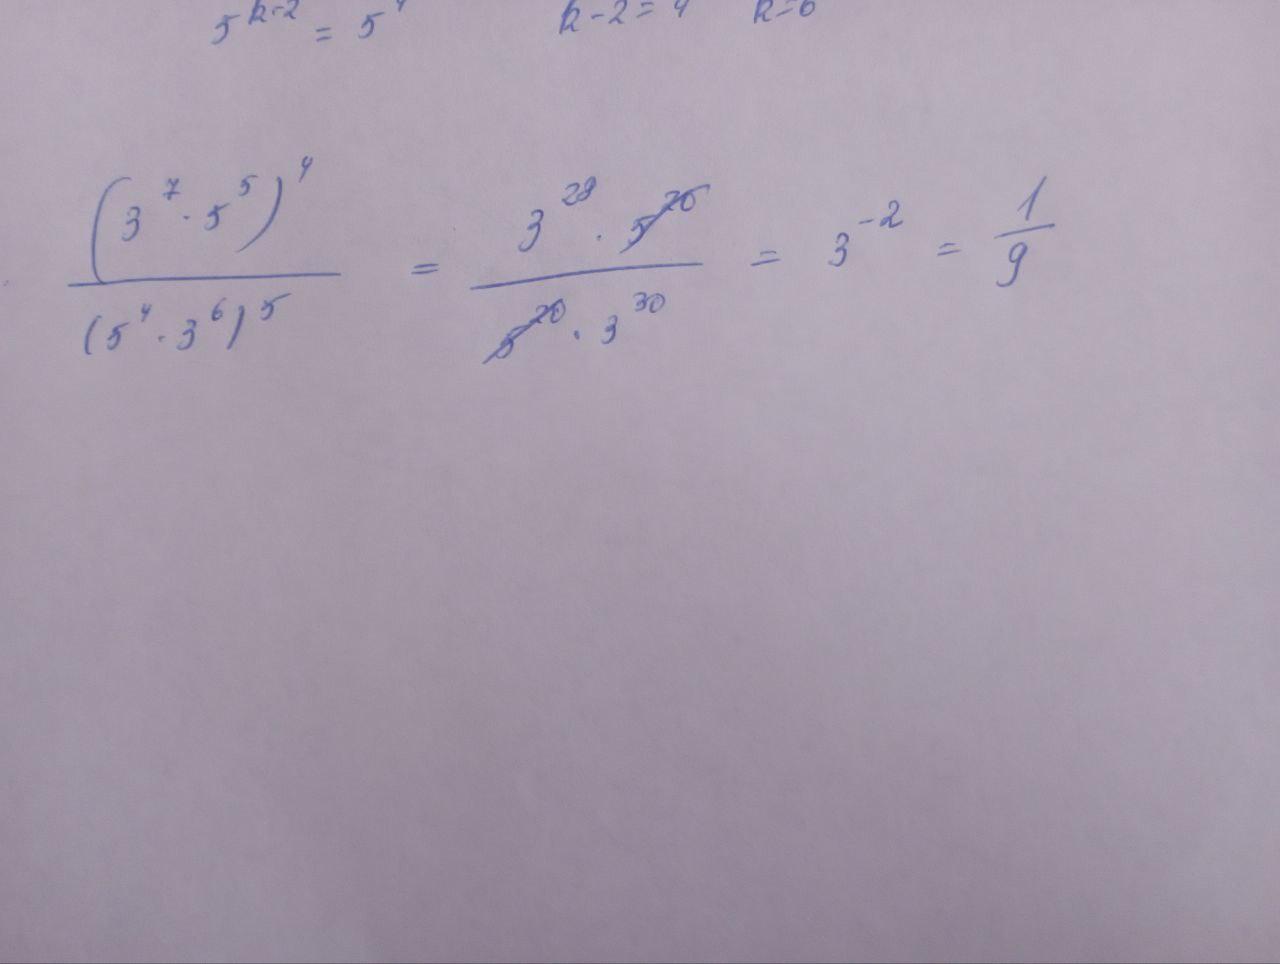 5^{k-2} = 5^4   k-2=4   k=6
\frac{(3^7 \cdot 5^5)^4}{(5^4 \cdot 3^6)^5} = \frac{3^{28} \cdot 5^{20}}{5^{20} \cdot 3^{30}} = 3^{-2} = \frac{1}{9}